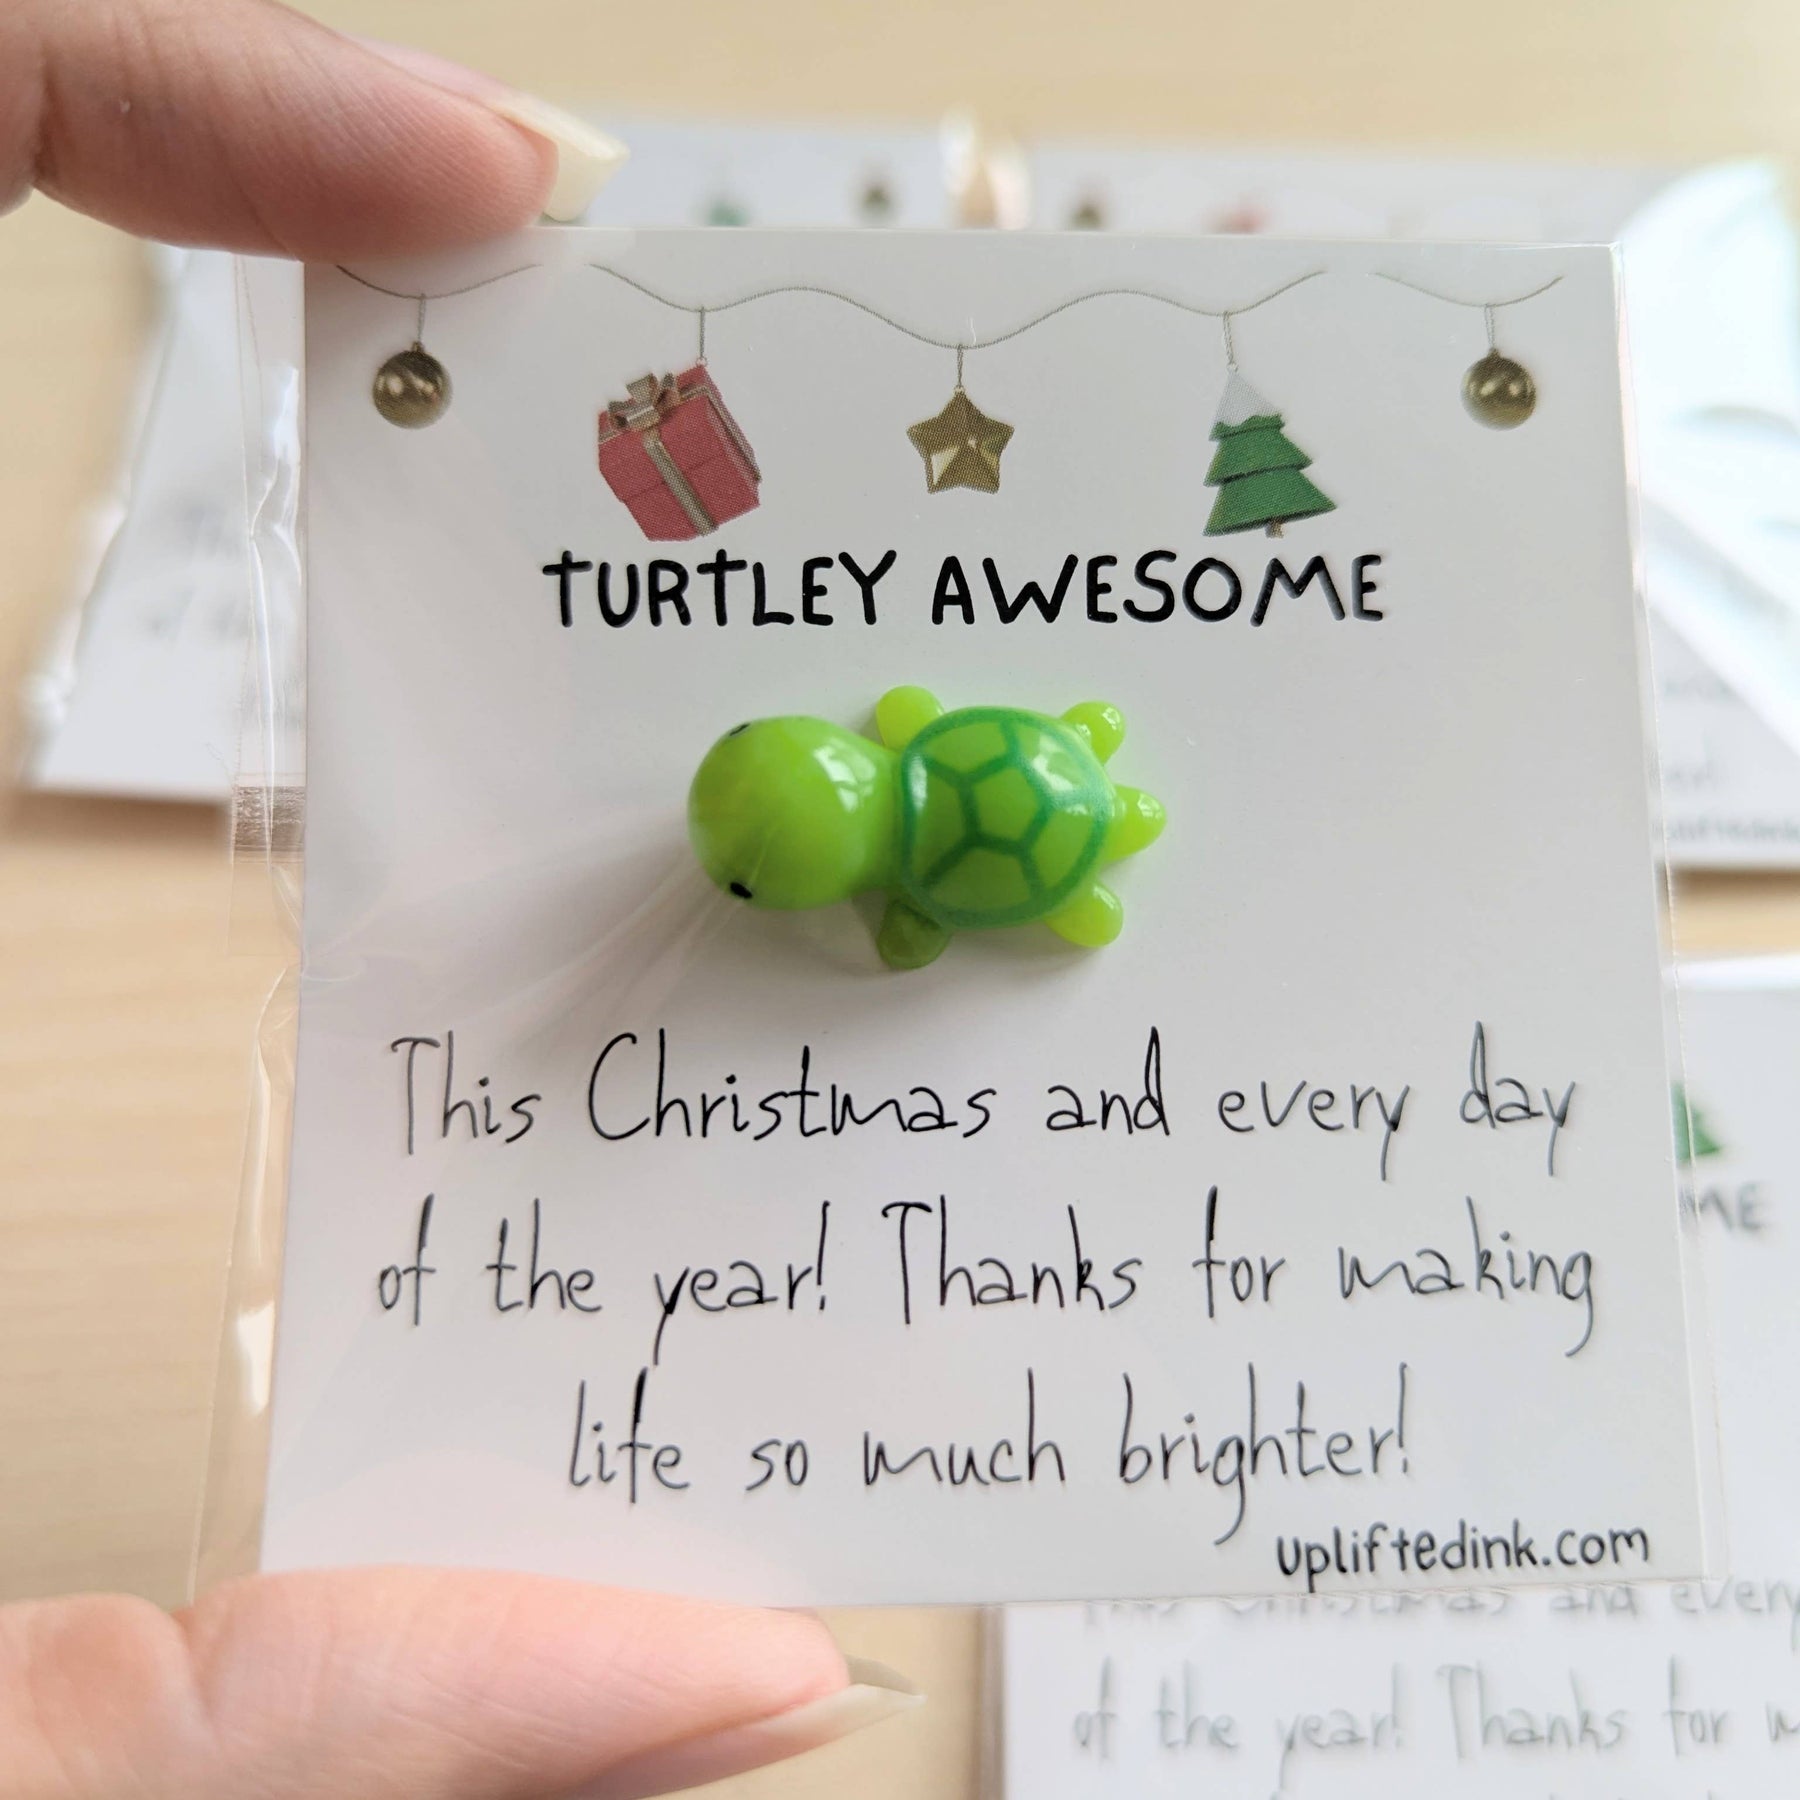 TURTLEY AWESOME
This Christmas and every day
of the year! Thanks for making
life so much brighter!
upliftedink.com
ME
This Christmas and every
of the year! Thanks for